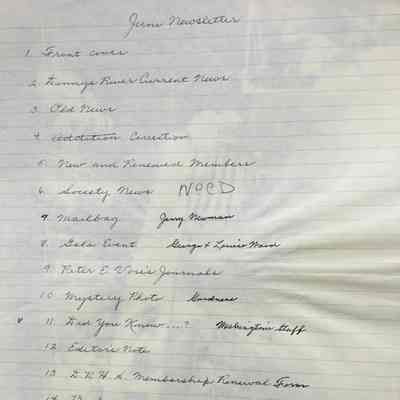 June Newsletter
1. Front cover
2. Dennys River Current News
3. Old News
4. addition Correction
5. New and Renewed Members
6. Society News NoCD
7. Mailbag Jerry Newman
8. Gala Event George & Louise Ward
9. Peter E. Vose's Journals
10 Mystery Photo Gardners
11. Did You Know...? Washington Staff
12 Editors Note
13 D.R.H.S. Membership Renewal Form
14